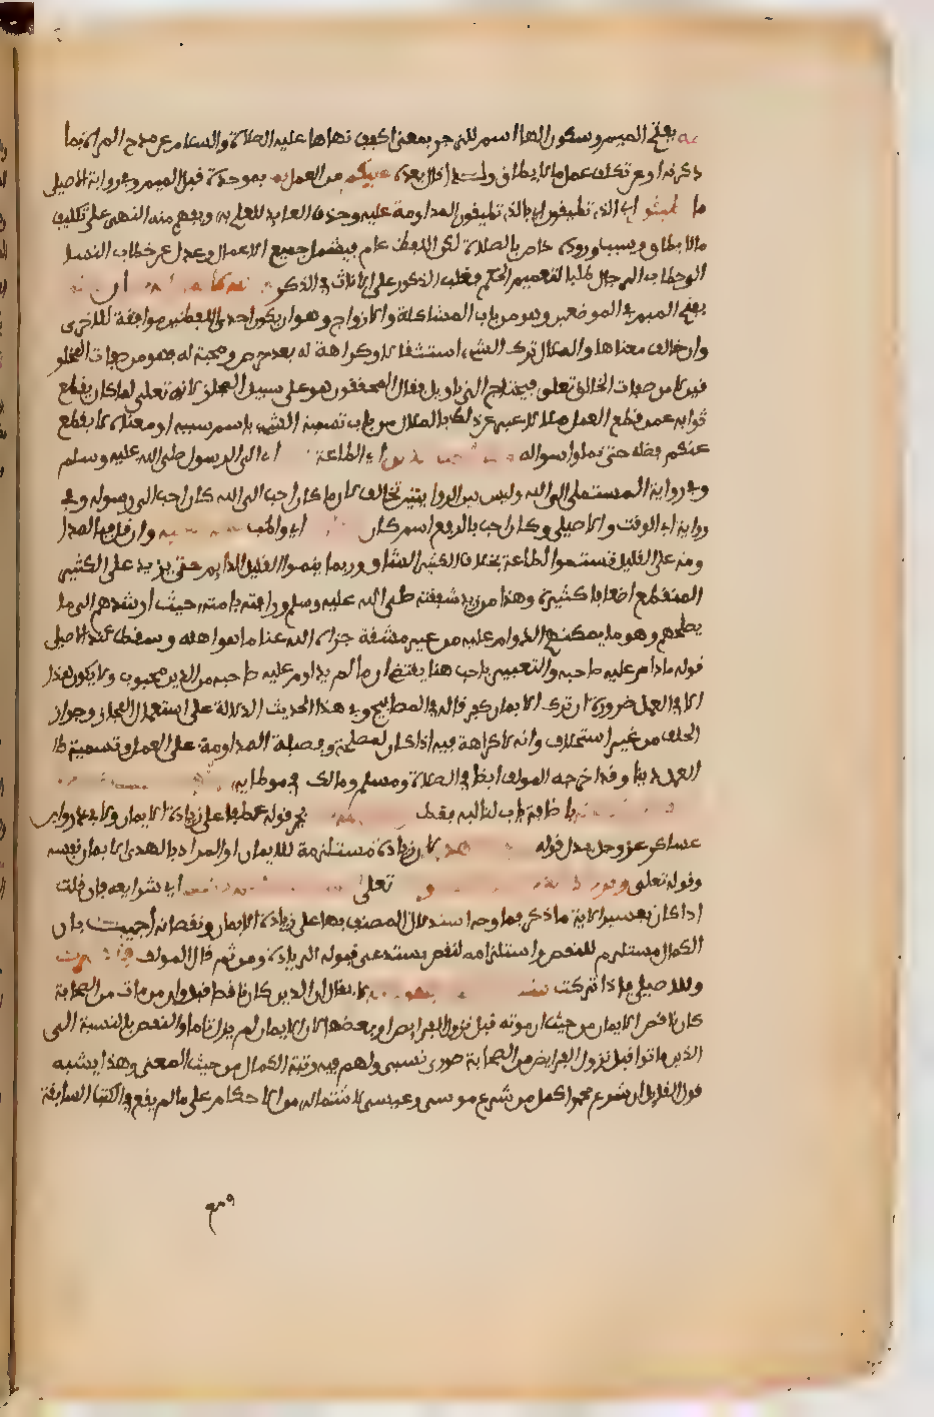 مه بفتح الميم وسكون الها اسم للزجر بمعنى اكفف نهاها عليه الصلاة والسلام عن مدح المراة بما
ذكرته او عن تكلف عمل ما لا يطاق ولذا قال بعده عليكم من العمل بموحدة قبل الميم وفي رواية الاصيلي
ما تطيقون اي الذي تطيقون اي بالذي تطيقون المداومة عليه وحذف العايد للعلم به ويفهم منه النهي على تكليف
ما لا يطاق وسبب وروده خاص بالصلاة لكن اللفظ عام فيشمل جميع الاعمال وعدل عن خطاب النسا
الى خطاب الرجال طلبا لتعميم الحكم فغلب الذكور على الاناث في الذكر
بفتح الميم في الموضعين وهو من باب المشاكلة والازدواج وهو ان يكون احدى اللفظتين موافقة للاخرى
وان خالف معناها والملال ترك الشيء استثقالا وكراهة له بعد حرص ومحبة له فهو من صفات المخلو
قين لا من صفات الخالق تعلى فيحتاج الى تاويل فقال المحققون هو على سبيل المجاز لانه تعلى لما كان يقطع
ثوابه عمن قطع العمل ملالا عبر عن ذلك بالملال من باب تسمية الشيء باسم سببه او معناه لا يقطع
عنكم فضله حتى تملوا سواله اي الطاعة اي الى الرسول صلى الله عليه وسلم
وفي رواية المستملي الى الله وليس بين الروايتين تخالف لان ما كان احب الى الله كان احب الى رسوله وفي
رواية ابي الوقت والاصيلي وكان احب بالرفع اسم كان اي واظب وان قل فبالمدا
ومة على القليل تستمر الطاعة بخلاف الكثير الشاق وربما ينموا القليل الدايم حتى يزيد على الكثير
المنقطع اضعافا كثيرة وهذا من مزيد شفقته صلى الله عليه وسلم ورافته بامته حيث ارشدهم الى ما
يصلحهم وهو ما يمكنهم الدوام عليه من غير مشقة جزاه الله عنا ما هو اهله وسقط عند الاصيلي
قوله ما دام عليه صاحبه والتعبير باحب هنا يقتضي ان ما لم يداوم عليه صاحبه من الدين محبوب ولا يكون هذا
الا في العمل ضرورة ان ترك الايمان كفر قاله في المصابيح وفي هذا الحديث الدلالة على استعمال المجاز وجواز
الحلف من غير استحلاف وانه لا كراهة فيه اذا كان لمصلحة وفضيلة المداومة على العمل وتسمية
العمل دينا وقد اخرجه المولف ايضا في الصلاة ومسلم ومالك في موطايه
باضافة باب لتاليه فقط بجر قوله عطفا على زيادة الايمان ولابن
عساكر عز وجل بدل قوله لان زيادة مستلزمة للايمان او المراد بالهدى الايمان نفسه
وقوله تعلى تعلى اي شرايعه فان قلت
اذا كان تفسير الاية ما ذكر فما وجه استدلال المصنف بها على زيادة الايمان ونقصانه اجيب بان
الكمال مستلزم للنقص واستلزامه للنقص يستدعي قبوله الزيادة ومن ثم قال المولف
وللاصيلي فاذا تركت لا يقال ان الدين كان ناقصا قبل وان من مات من الصحابة
كان ناقص الايمان من حيث ان موته قبل نزول الفرايض او بعضها لان الايمان لم يزل تاما والنقص بالنسبة الى
الذين ماتوا قبل نزول الفرايض من الصحابة صوري نسبي ولهم فيه رتبة الكمال من حيث المعنى وهذا يشبه
قول القايل ان شرع محمد اكمل من شرع موسى وعيسى لاشتماله من الاحكام على ما لم يقع في الكتب السابقة